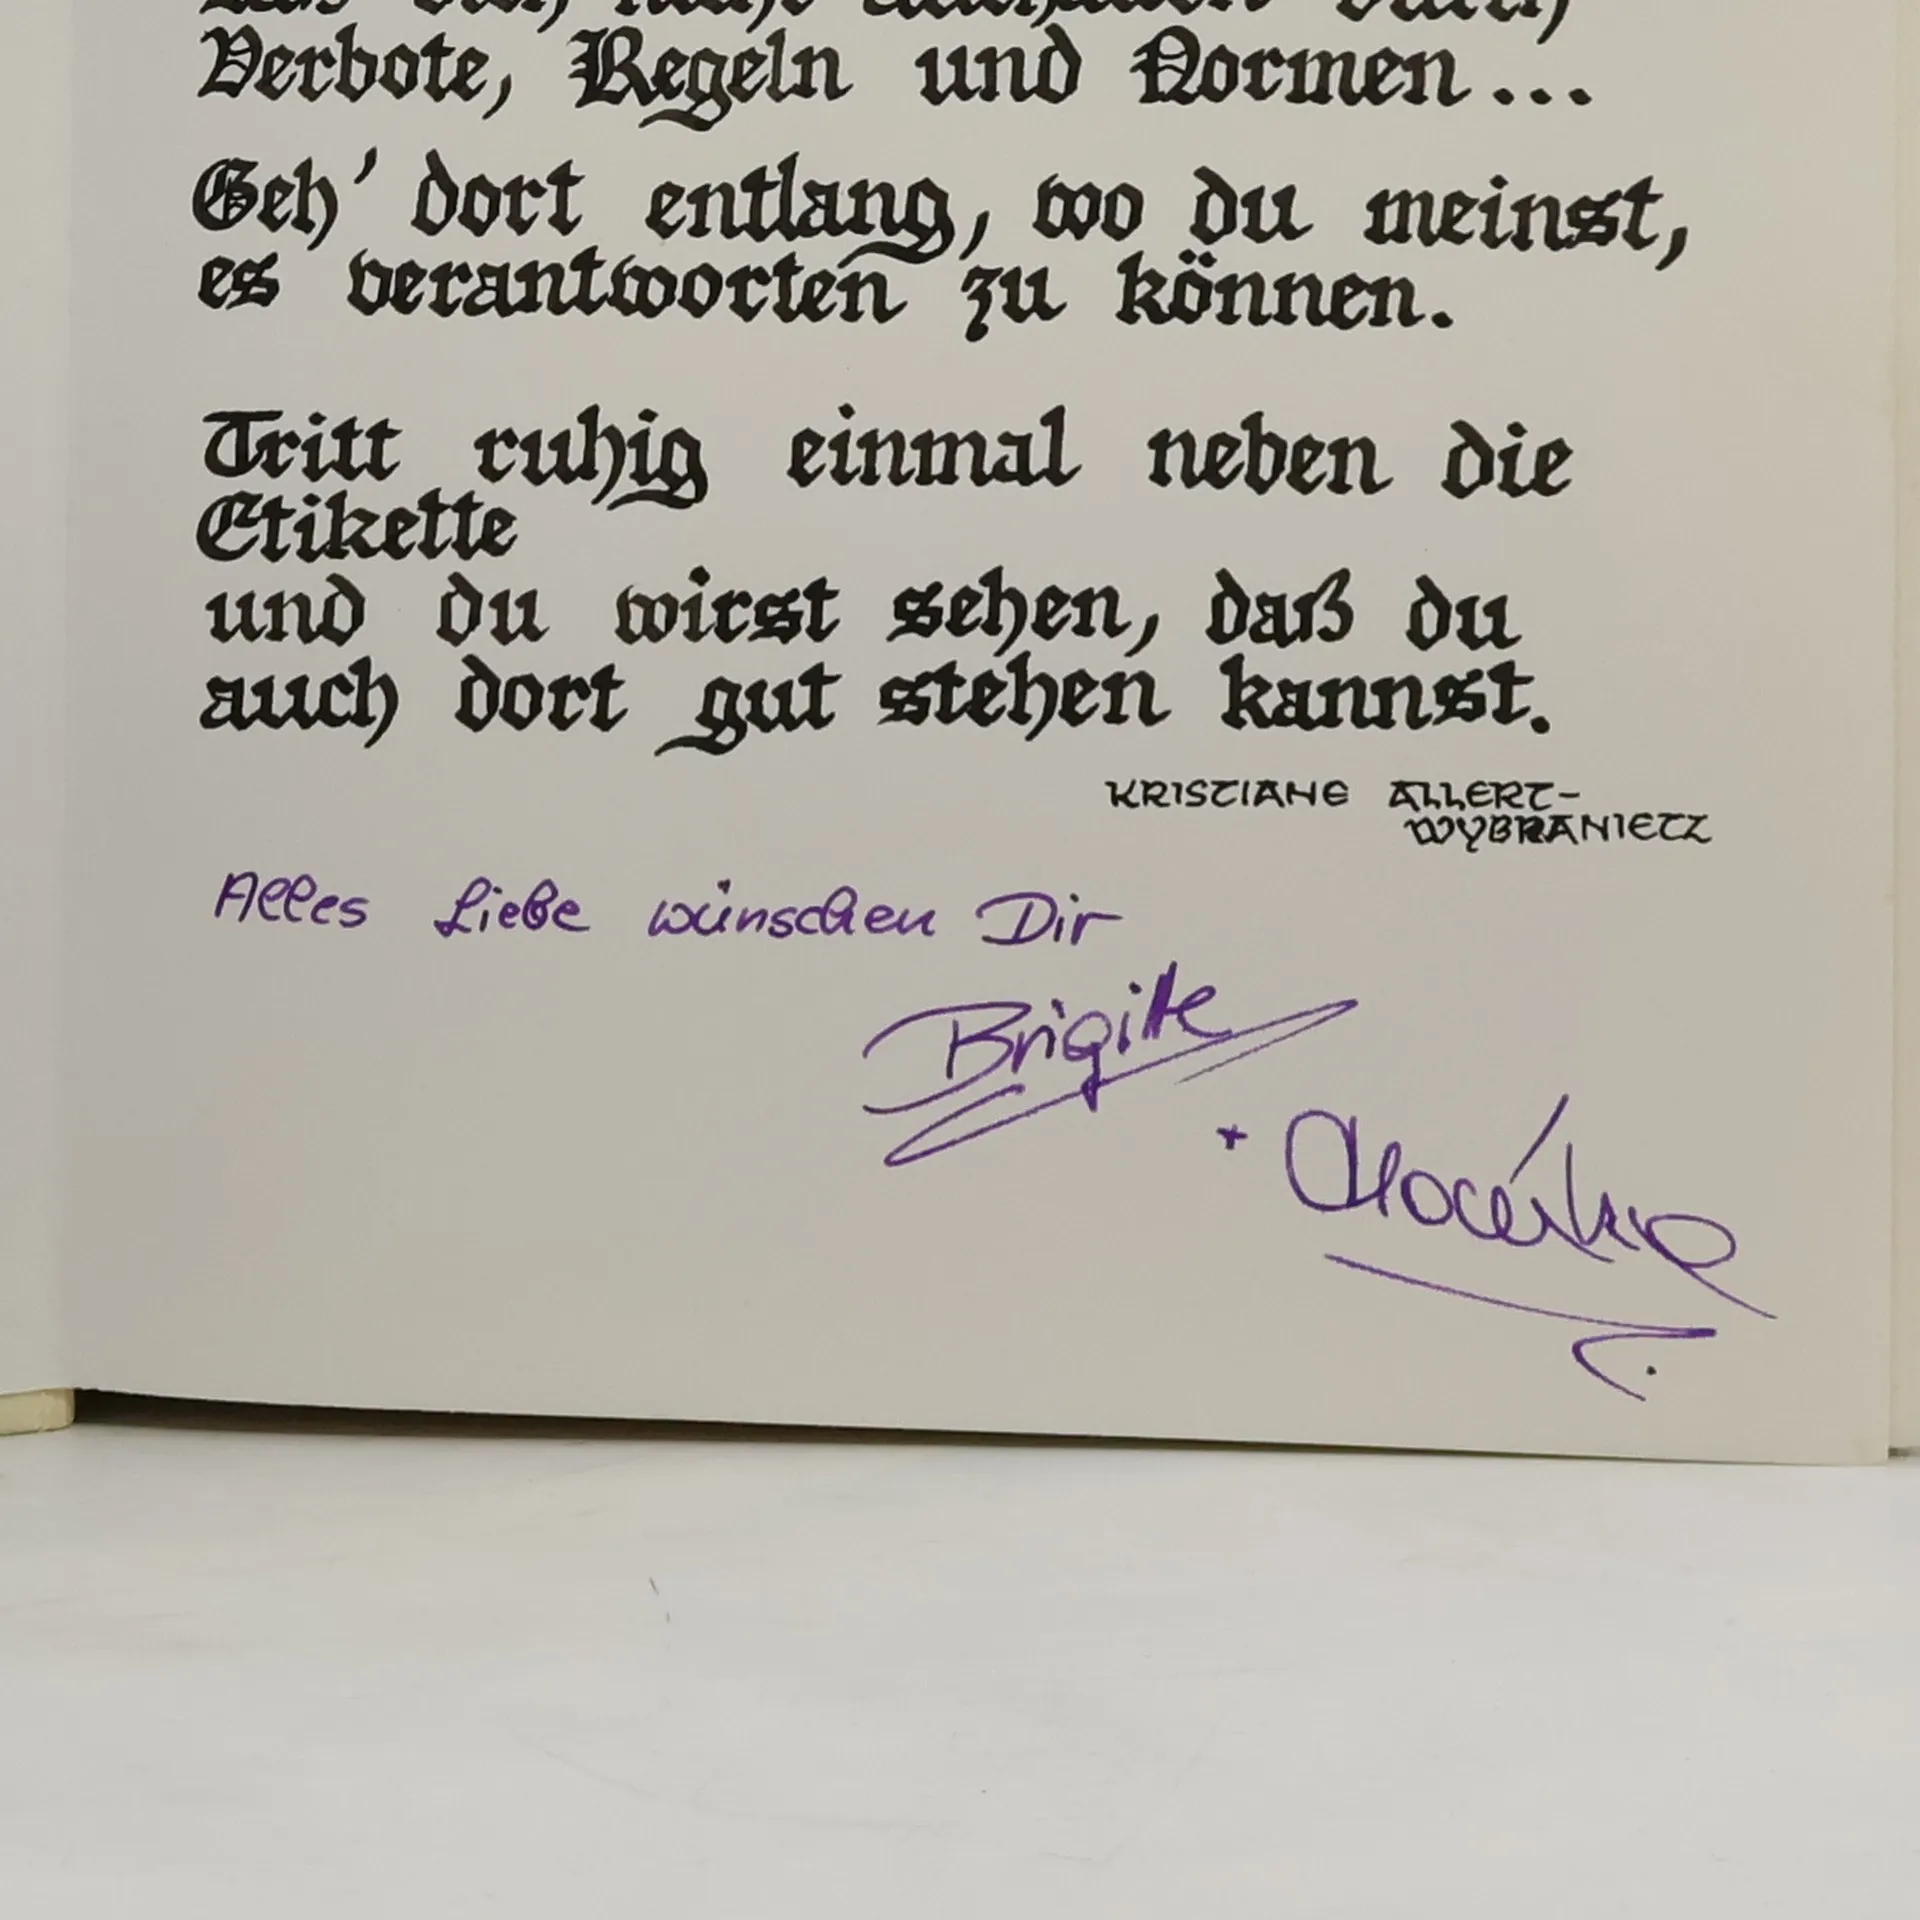 Laß dich nicht aufhalten durch
Verbote, Regeln und Normen...
Geh' dort entlang, wo du meinst,
es verantworten zu können.
Tritt ruhig einmal neben die
Etikette
und du wirst sehen, daß du
auch dort gut stehen kannst.
KRISTIANE ALLERT-
WYBRANIETZ
Alles Liebe wünschen Dir
Brigitte
+